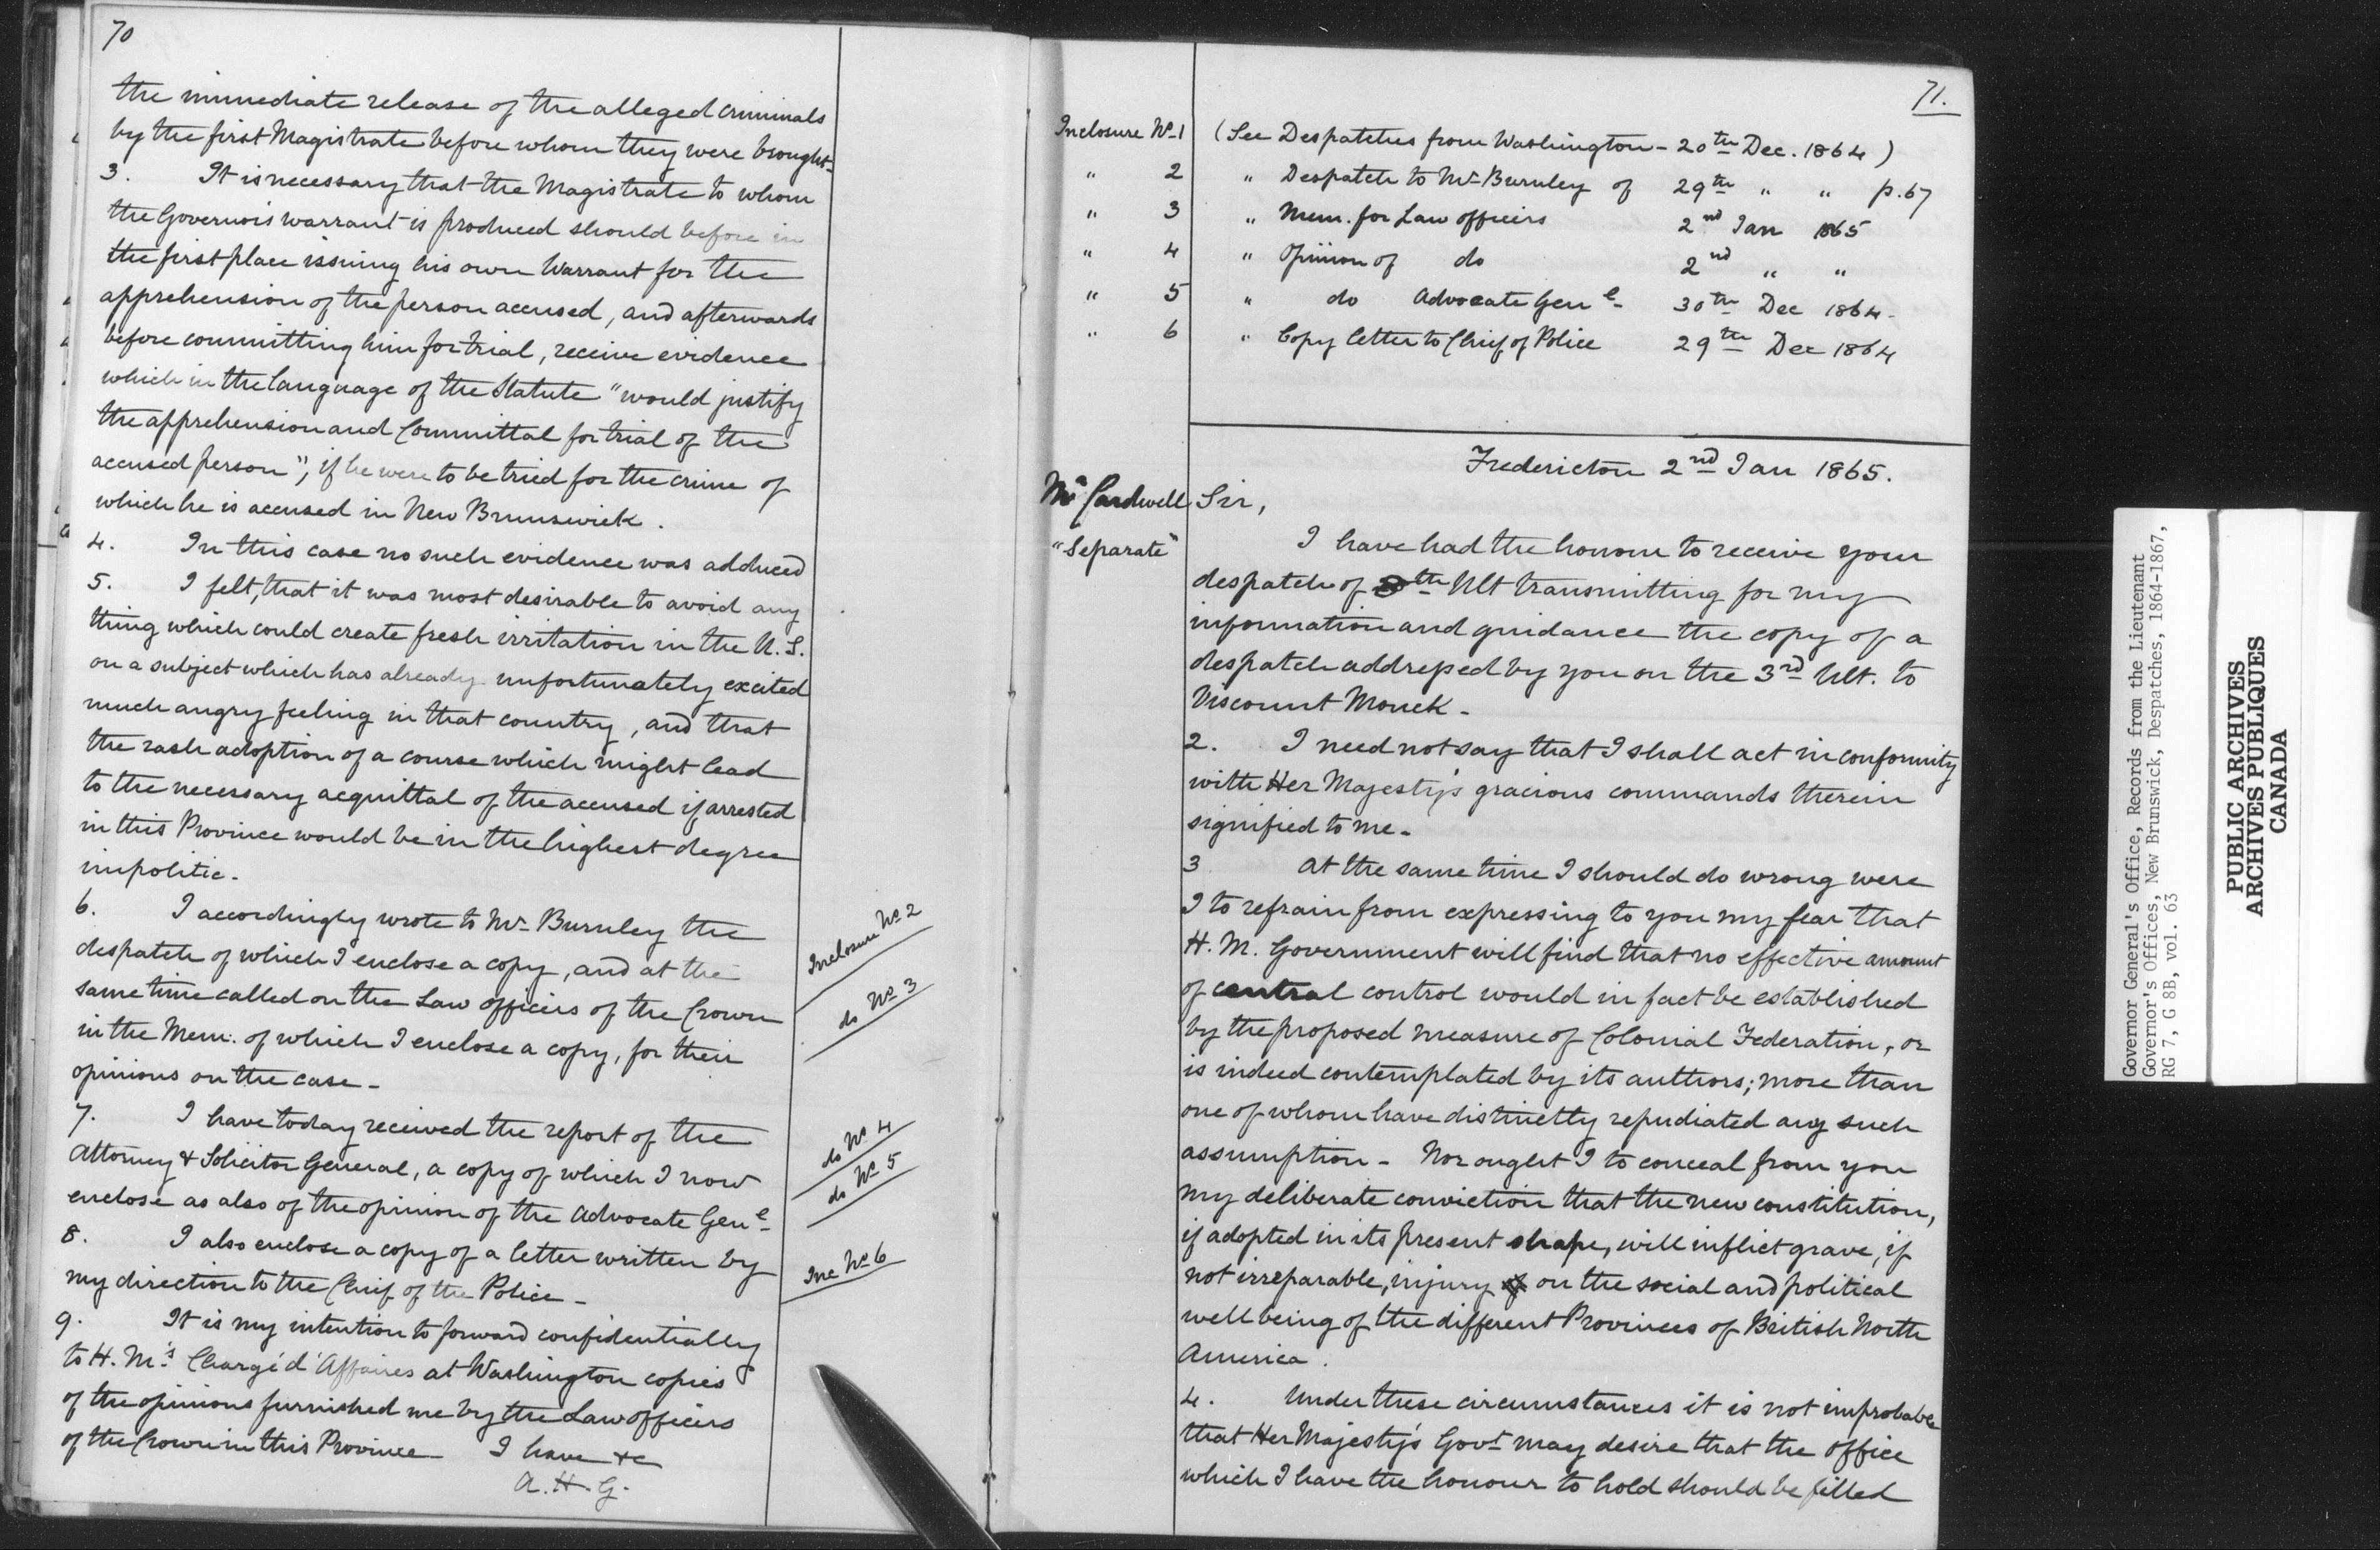 70
the immediate release of the alleged criminals
by the first Magistrate before whom they were brought-
3. It is necessary that the Magistrate to whom
the Governor's warrant is produced should before in
the first place issuing his own Warrant for the
apprehension of the person accused, and afterwards
before committing him for trial, receive evidence
which in the language of the Statute "would justify
the apprehension and Committal for trial of the
accused person", if he were to be tried for the crime of
which he is accused in New Brunswick.
4. In this case no such evidence was adduced
5. I felt, that it was most desirable to avoid any
thing which could create fresh irritation in the U.S.
on a subject which has already unfortunately excited
much angry feeling in that country, and that
the rash adoption of a course which might lead
to the necessary acquittal of the accused if arrested
in this Province would be in the highest degree
impolitic.
6. I accordingly wrote to Mr Burnley the
despatch of which I enclose a copy, and at the
same time called on the Law officers of the Crown
in the Mem. of which I enclose a copy, for their
opinions on the case-
7. I have today received the report of the
Attorney & Solicitor General, a copy of which I now
enclose as also of the opinion of the Advocate Genl-
8. I also enclose a copy of a letter written by
my direction to the Chief of the Police-
9. It is my intention to forward confidentially
to H.M's Chargé d'Affaires at Washington copies
of the opinions furnished me by the Law officers
of the Crown in this Province- I have &c
A.H.G.
Inclosure No 2
do No 3
do No 4
do No 5
Inc No 6
71.
Inclosure No 1 (See Despatches from Washington - 20th Dec. 1864)
" 2 " Despatch to Mr Burnley of 29th " " p.67
" 3 " Mem. for Law officers 2nd Jan 1865
" 4 " Opinion of do 2nd " "
" 5 " do Advocate Genl- 30th Dec 1864-
" 6 " Copy letter to Chief of Police 29th Dec 1864
Fredericton 2nd Jan 1865.
Mr Cardwell
"Separate"
Sir,
I have had the honour to receive your
despatch of th Ult transmitting for my
information and guidance the copy of a
despatch addressed by you on the 3rd Ult. to
Viscount Monck-
2. I need not say that I shall act in conformity
with Her Majesty's gracious commands therein
signified to me-
3 At the same time I should do wrong were
I to refrain from expressing to you my fear that
H.M. Government will find that no effective amount
of central control would in fact be established
by the proposed measure of Colonial Federation, or
is indeed contemplated by its authors; more than
one of whom have distinctly repudiated any such
assumption - Nor ought I to conceal from you
my deliberate conviction that the new constitution,
if adopted in its present shape, will inflict grave, if
not irreparable, injury on the social and political
well being of the different Provinces of British North
America.
4. Under these circumstances it is not improbable
that Her Majesty's Govt may desire that the office
which I have the honour to hold should be filled
Governor General's Office, Records from the Lieutenant
Governor's Offices, New Brunswick, Despatches, 1864-1867,
RG 7, G 8B, vol. 63
PUBLIC ARCHIVES
ARCHIVES PUBLIQUES
CANADA